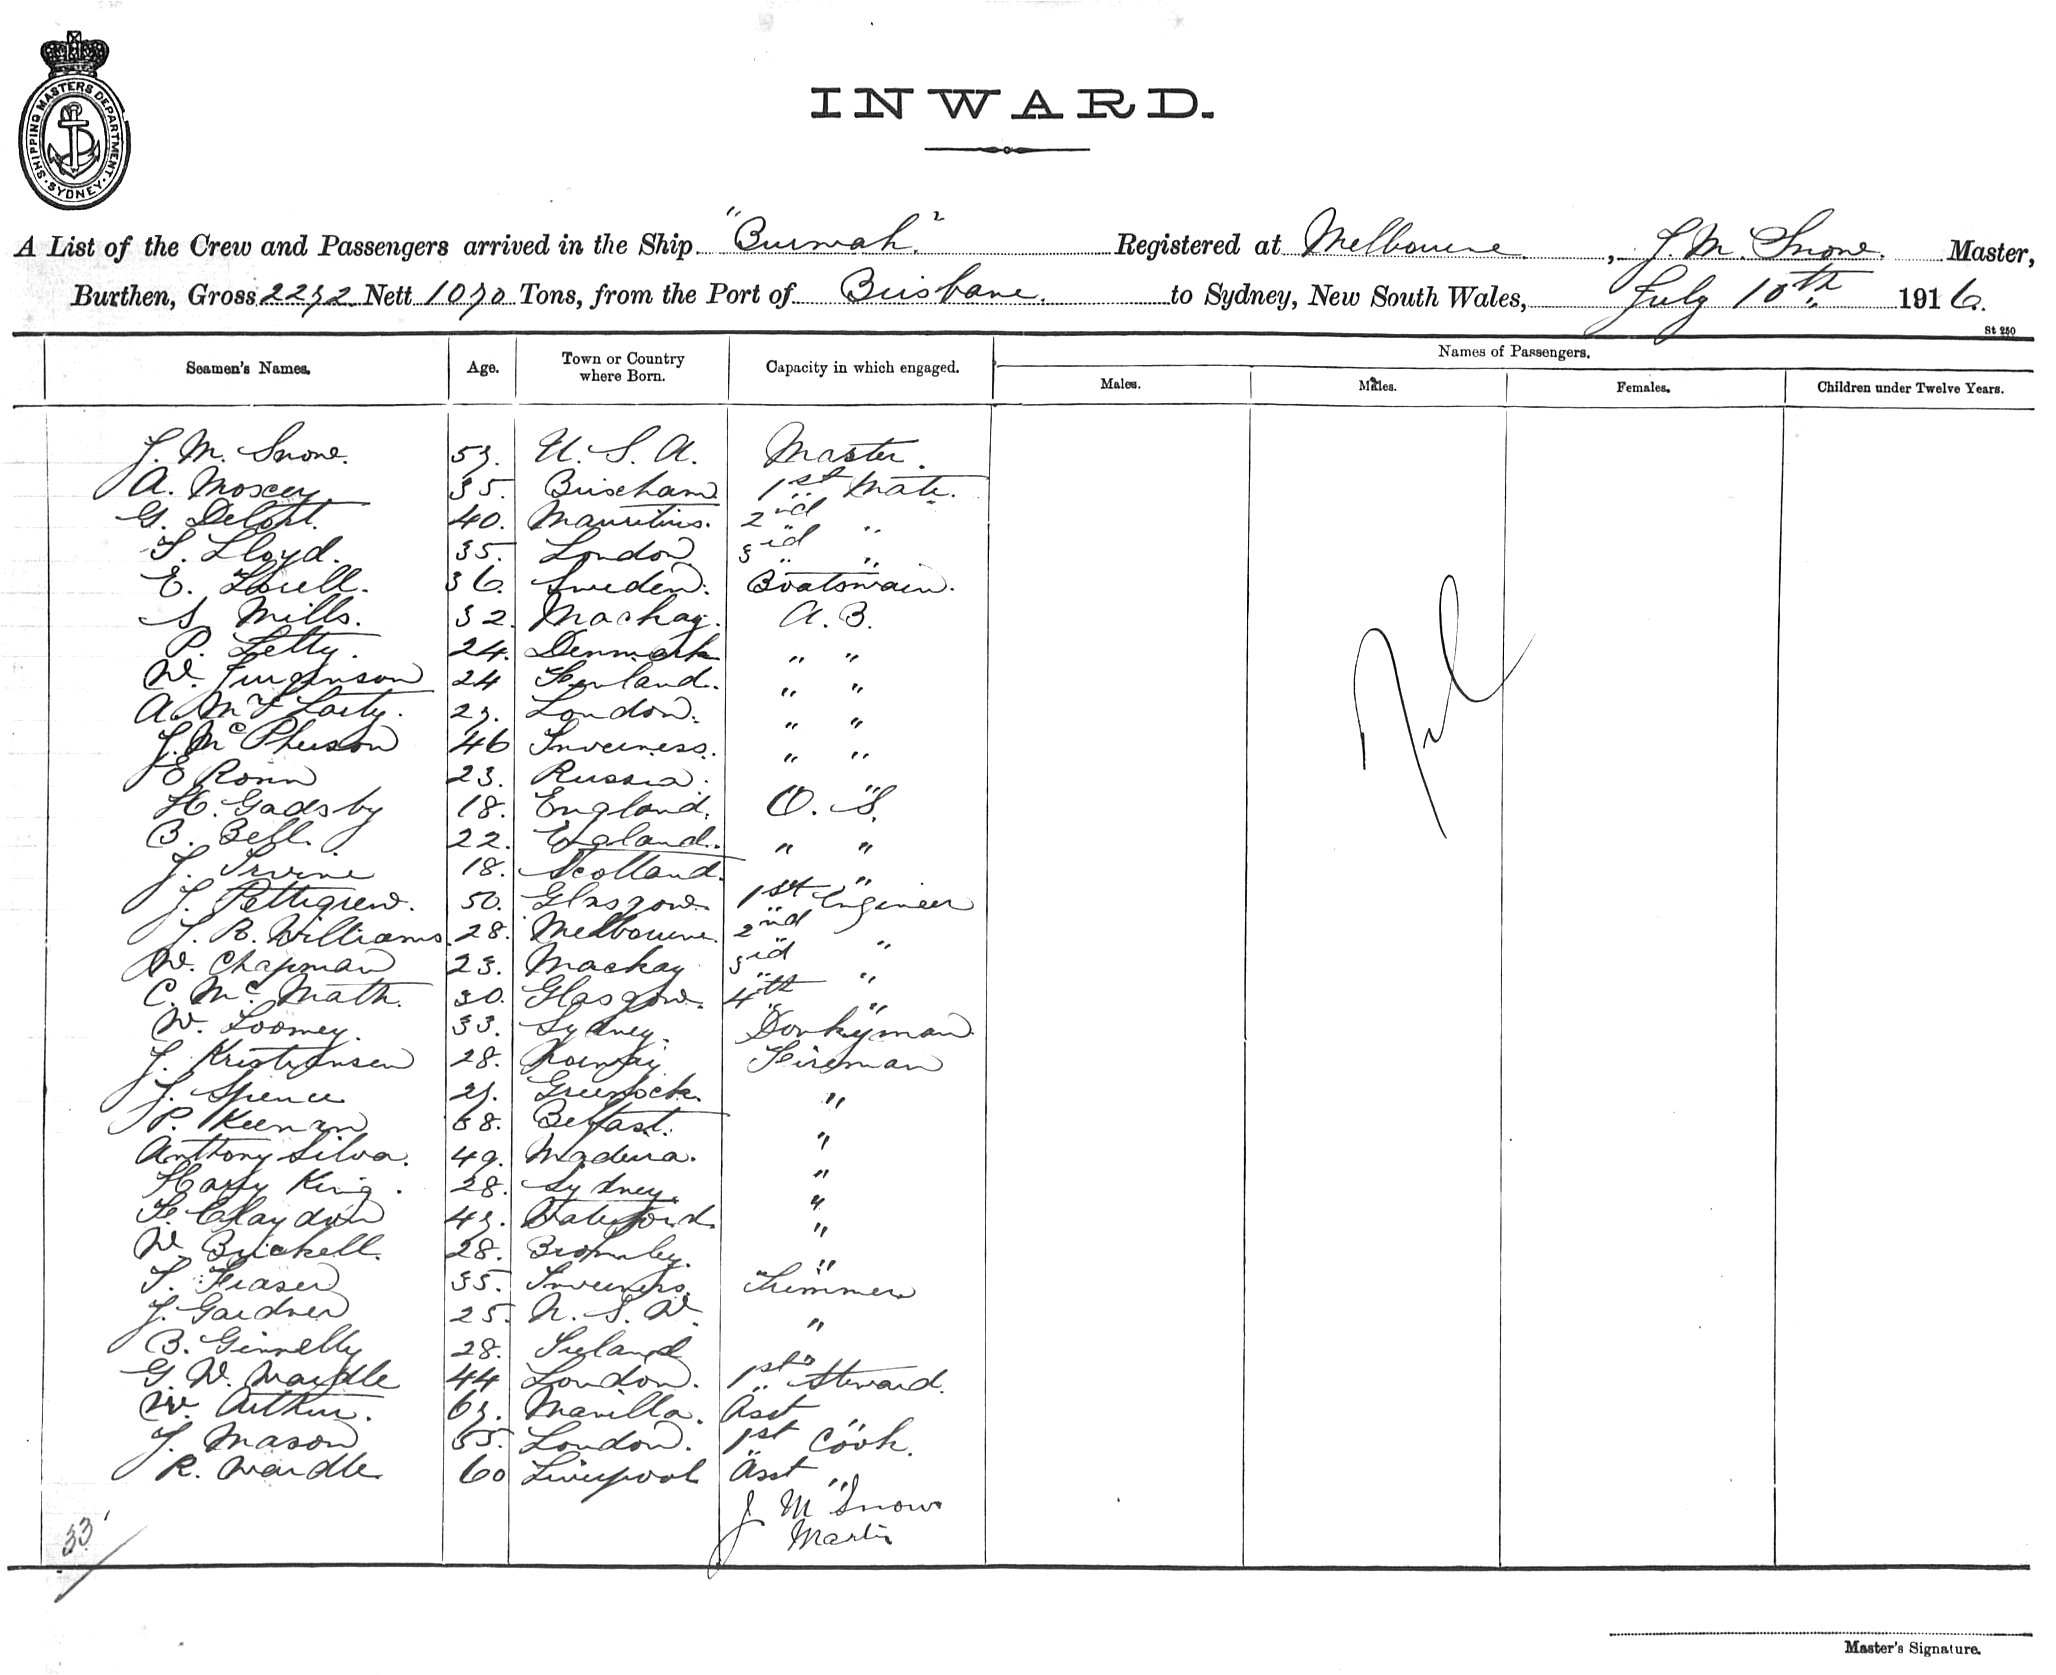 SHIPPING MASTERS DEPARTMENT
SYDNEY
INWARD.
A List of the Crew and Passengers arrived in the Ship "Burwah" Registered at Melbourne, J. M. Snow. Master,
Burthen, Gross Nett Tons, from the Port of Brisbane. to Sydney, New South Wales, July 10th 1916.
St 250
Seamen's Names. Age. Town or Country where Born. Capacity in which engaged. Names of Passengers.
Males. Males. Females. Children under Twelve Years.
J. M. Snow. U. S. A. Master.
A. 35. Brixham 1st Mate.
G. 40. Mauritius. 2nd "
Lloyd. 35. London 3rd "
E. 36. Sweden. Boatswain.
S. Mills. 32. Mackay. A. B.
P. 24. Denmark " "
W. 24 " "
A. London. " "
J. McPherson 46 Inverness. " "
E 23. Russia. " "
H. Gadsby 18. England. O. S.
B. Bell. 22. England. " "
J. Irvine 18. Scotland. " "
J. Pettigrew. 50. Glasgow. 1st Engineer
J. R. Williams 28. Melbourne. 2nd "
W. Chapman 23. Mackay 3rd "
C. McMath. 30. Glasgow. 4th "
W. 33. Sydney. Donkyman
J. Kristiansen 28. Norway Fireman
J. Spence Greenock. "
P. Keenan Belfast. "
Anthony Silva. 49. Madeira. "
Harry King. 28. Sydney. "
F. Claydon "
W. Brickell. 28. Bromley. "
Fraser 35. Inverness. Trimmer
J. Gardner 25. N. S. W. "
B. Ginnelly 28. Ireland "
G. W. Wardle 44 London. 1st Steward.
W. Arthur. Manilla. Asst "
J. Mason 55. London. 1st Cook.
R. Wardle 60 Liverpool Asst "
J M Snow
Master
33
Nil
Master's Signature.